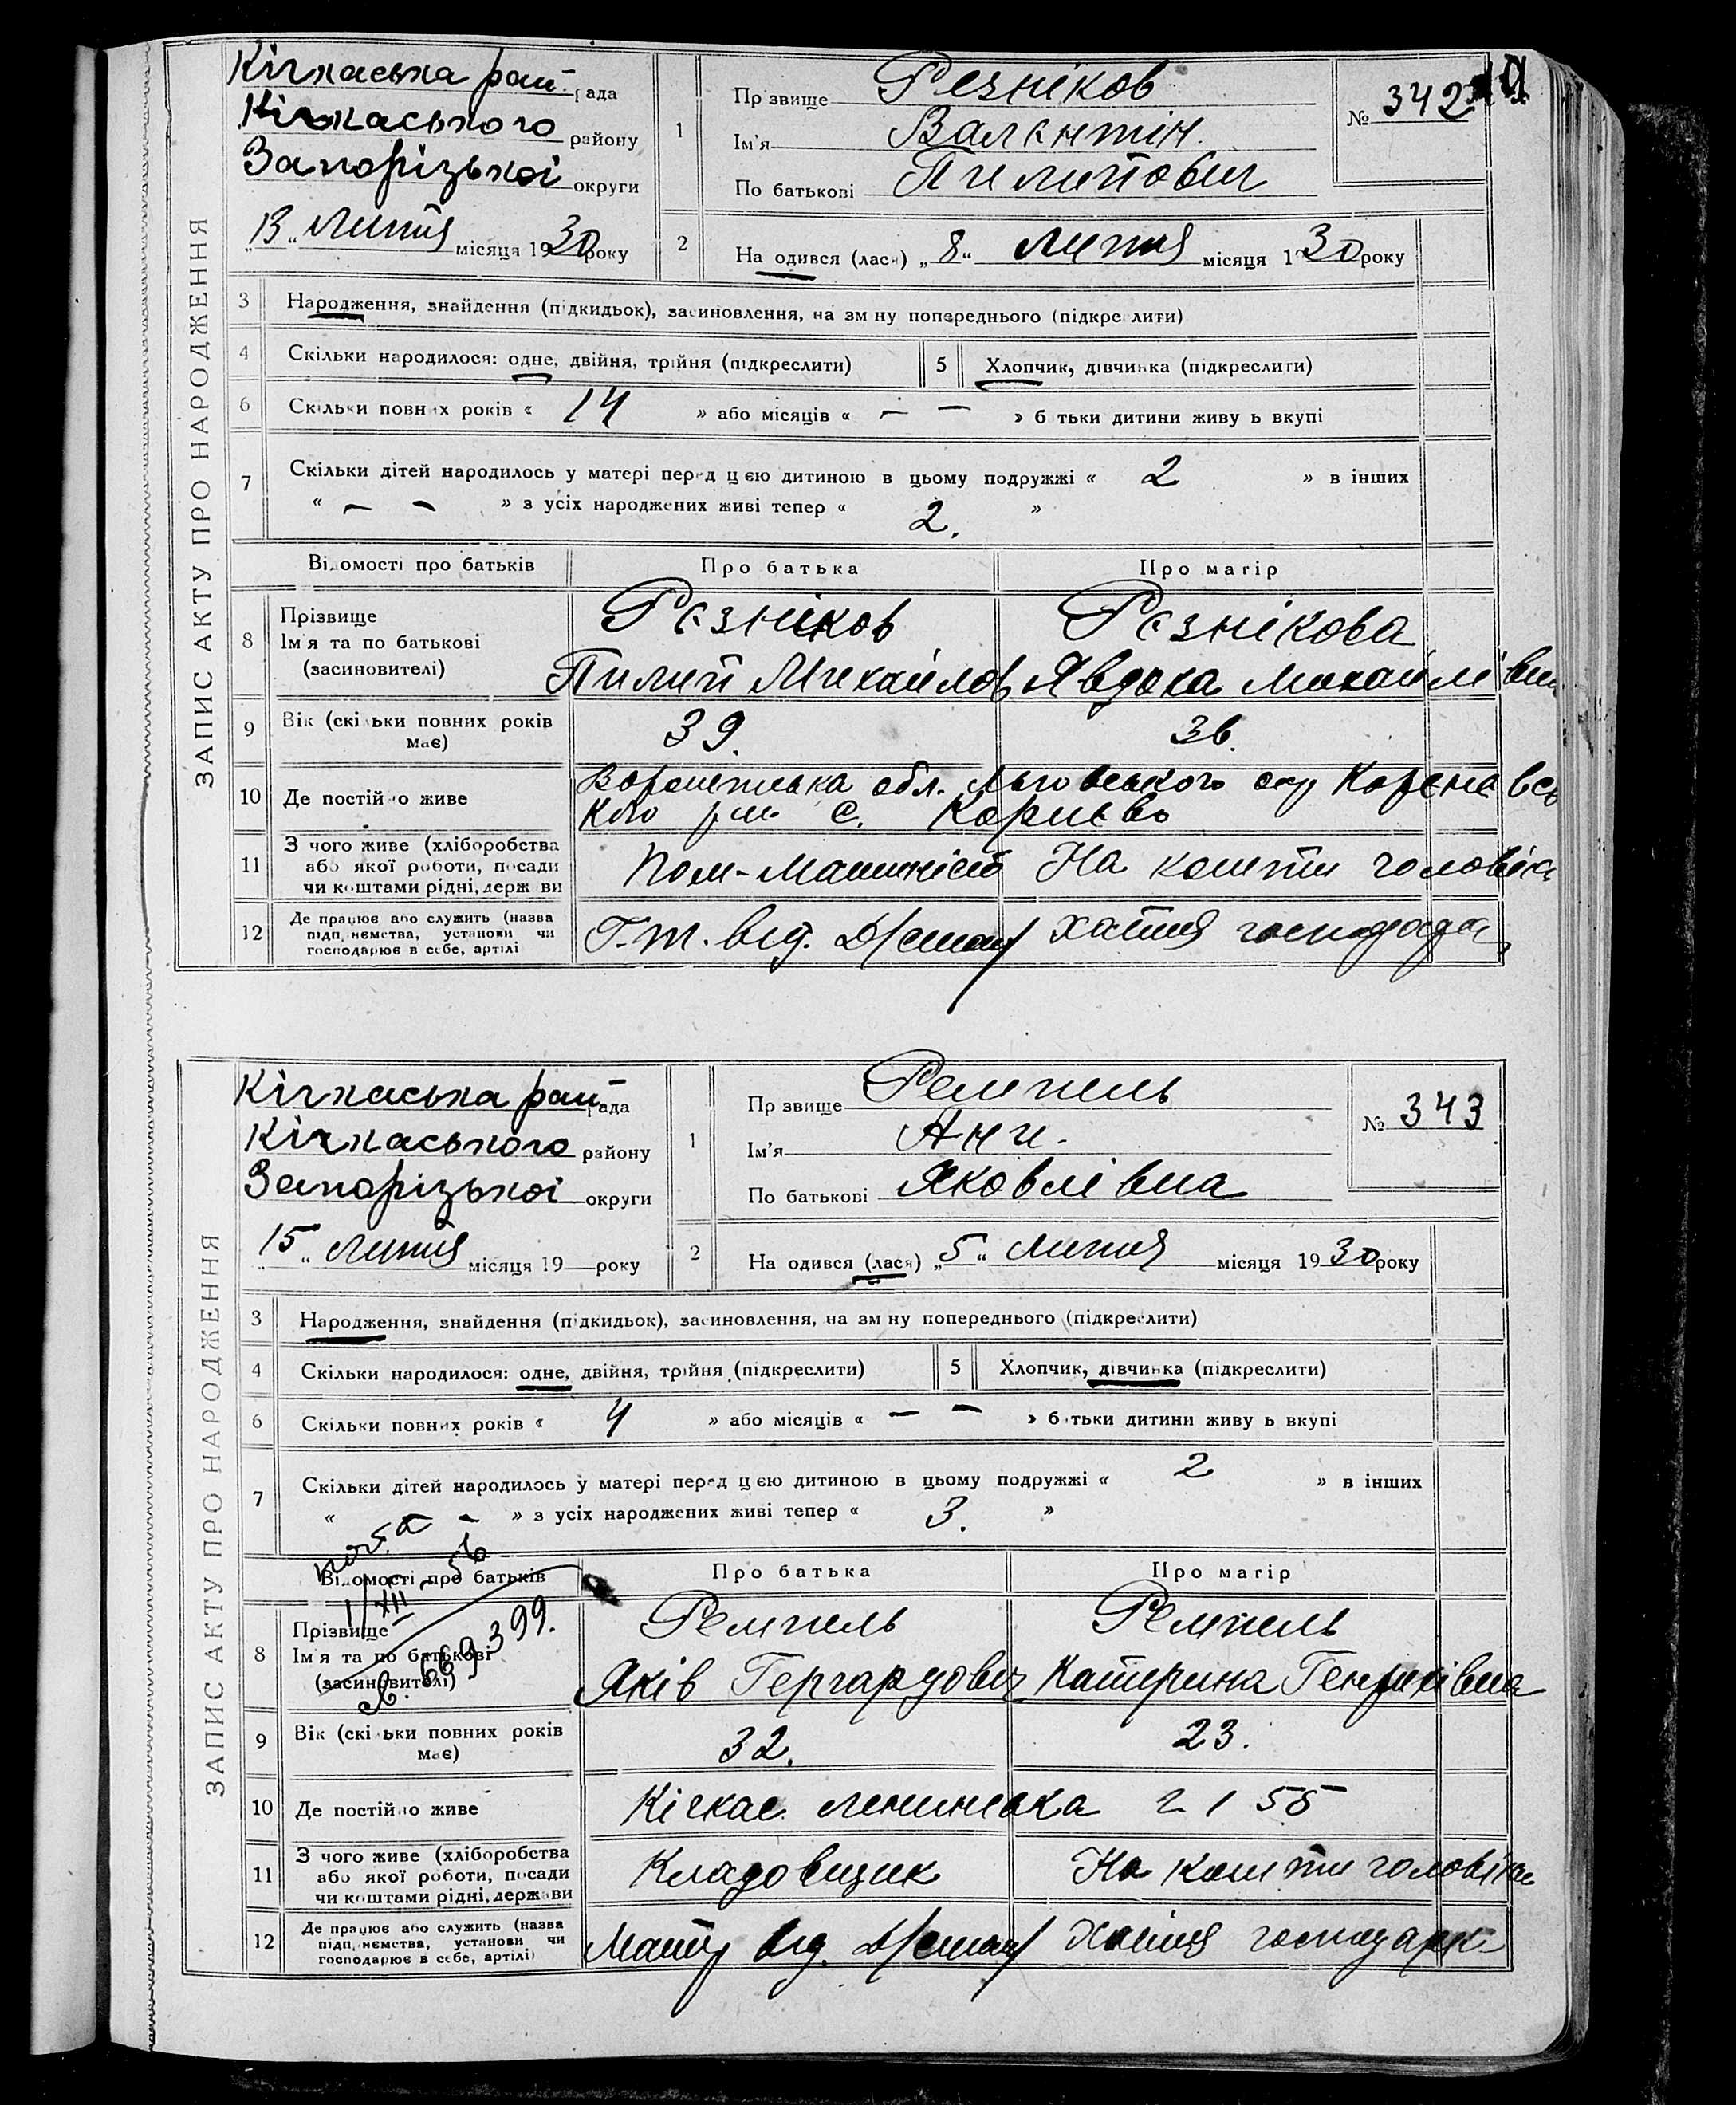 ЗАПИС АКТУ ПРО НАРОДЖЕННЯ
Кічкаська рай рада
Кічкаського району
Запорізької округи
„13“ Липня місяця 1930 року
1
Прзвище Резніков
Ім'я Валентін.
По батькові Пилипович
№ 342
2
На одився (лася) „8“ Липня місяця 1930 року
3 Народження, знайдення (підкидьок), засиновлення, на зм ну попереднього (підкре лити)
4 Скільки народилося: одне, двійня, трійня (підкреслити) 5 Хлопчик, дівчинка (підкреслити)
6 Скільки повних років « 14 » або місяців « — — » б тьки дитини живу ь вкупі
7 Скільки дітей народилось у матері перед цією дитиною в цьому подружжі « 2 » в інших
« — — » з усіх народжених живі тепер « 2. »
Відомості про батьків Про батька Про матір
8 Прізвище Резніков Резнікова
Ім'я та по батькові
(засиновителі) Пилип Михайлов Явдоха Михайлівна
9 Вік (скільки повних років має) 39. 36.
10 Де постійно живе
обл. Льговського окр Кореневсь
кого с.
11 З чого живе (хліборобства
або якої роботи, посади
чи коштами рідні, держ ви
Пом-Машиніст На кошти чоловіка
12 Де працює або служить (назва
підп иємства, установи чи
господарює в себе, артілі
від. Хатня
ЗАПИС АКТУ ПРО НАРОДЖЕННЯ
Кічкаська рай рада
Кічкаського району
Запорізької округи
„15“ Липня місяця 19— року
1
Прзвище Ремпель
Ім'я Ани.
По батькові Яковлівна
№ 343
2
На одився (лася) „5“ Липня місяця 1930 року
3 Народження, знайдення (підкидьок), засиновлення, на зм ну попереднього (підкреслити)
4 Скільки народилося: одне, двійня, трійня (підкреслити) 5 Хлопчик, дівчинка (підкреслити)
6 Скільки повних років « 4 » або місяців « — — » б тьки дитини живу ь вкупі
7 Скільки дітей народилось у матері перед цією дитиною в цьому подружжі « 2 » в інших
« — » з усіх народжених живі тепер « 3. »
1/XII - 56
669399.
Відомості про батьків Про батька Про матір
8 Прізвище Ремпель Ремпель
Ім'я та по батькові
(засиновителі) Яків Гергардович Катерина Генрихівна
9 Вік (скільки повних років має) 32. 23.
10 Де постійно живе Кічкас. 155
11 З чого живе (хліборобства
або якої роботи, посади
чи коштами рідні, держави
Кладовщик На кошти чоловіка
12 Де працює або служить (назва
підп иємства, установи чи
господарює в себе, артілі)
від. Хатня господарк